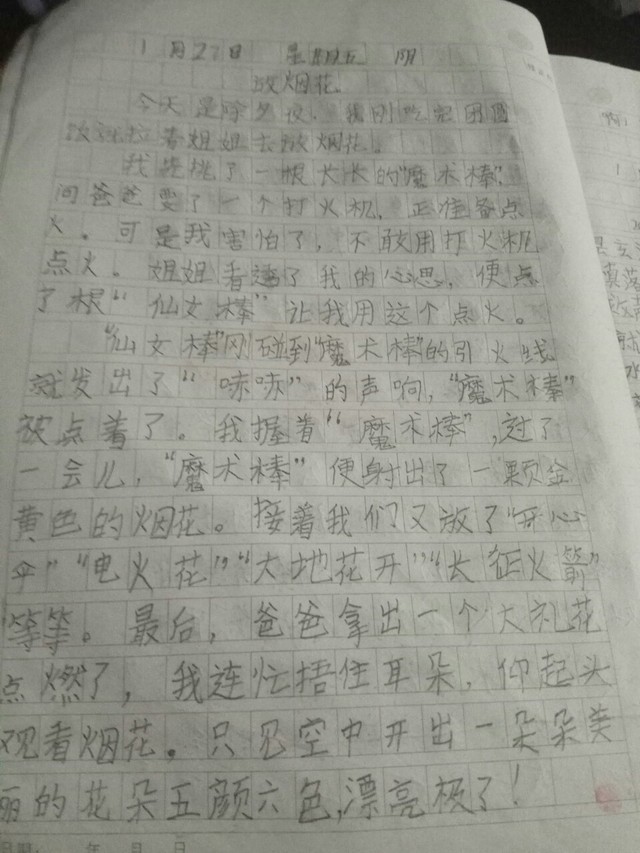 1月27日 星期五 阴
放烟花
今天是除夕夜，我刚吃完团圆
饭就拉着姐姐去放烟花。
我先挑了一根长长的“魔术棒”，
问爸爸要了一个打火机，正准备点
火。可是我害怕了，不敢用打火机
点火。姐姐看透了我的心思，便点
了根“仙女棒”让我用这个点火。
“仙女棒”刚碰到“魔术棒”的引火线
就发出了“哧哧”的声响，“魔术棒”
被点着了。我握着“魔术棒”，过了
一会儿，“魔术棒”便射出了一颗金
黄色的烟花。接着我们又放了“开心
伞”“电火花”“大地花开”“长征火箭”
等等。最后，爸爸拿出一个大礼花
点燃了，我连忙捂住耳朵，仰起头
观看烟花。只见空中开出一朵朵美
丽的花朵五颜六色，漂亮极了！
年 月 日